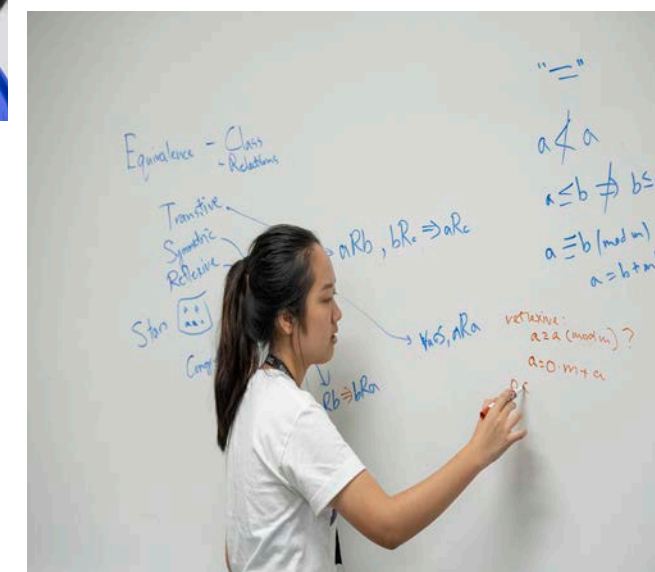 Equivalence - Class
- Relations
Transtive
Symmetric
Reflexive
aRb, bRc ⇒ aRc
∀a∈S, aRa
Rb ⇒ bRa
"="
a ≮ a
a ≤ b ⇏ b ≤
a ≡ b (mod m)
a = b + m
reflexive:
a ≡ a (mod m) ?
a = 0·m + a